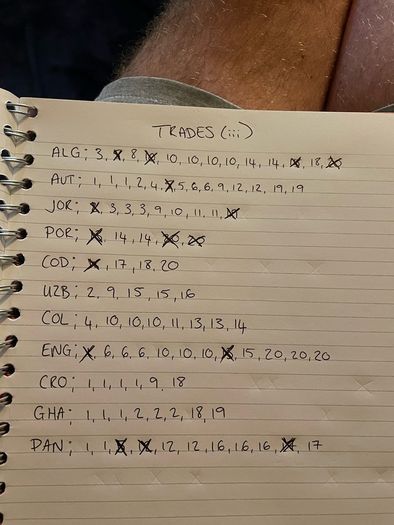 TRADES (iii)
ALG; 3, 8, 10, 10, 10, 10, 14, 14, 18,
AUT; 1, 1, 1, 2, 4, 5, 6, 6, 9, 12, 12, 19, 19
JOR; 3, 3, 3, 9, 10, 11, 11,
POR; 14, 14,
COD; 17, 18, 20
UZB; 2, 9, 15, 15, 16
COL; 4, 10, 10, 10, 11, 13, 13, 14
ENG; 6, 6, 6, 10, 10, 10, 15, 20, 20, 20
CRO; 1, 1, 1, 1, 9, 18
GHA; 1, 1, 1, 2, 2, 2, 18, 19
PAN; 1, 1, 12, 12, 16, 16, 16, 17